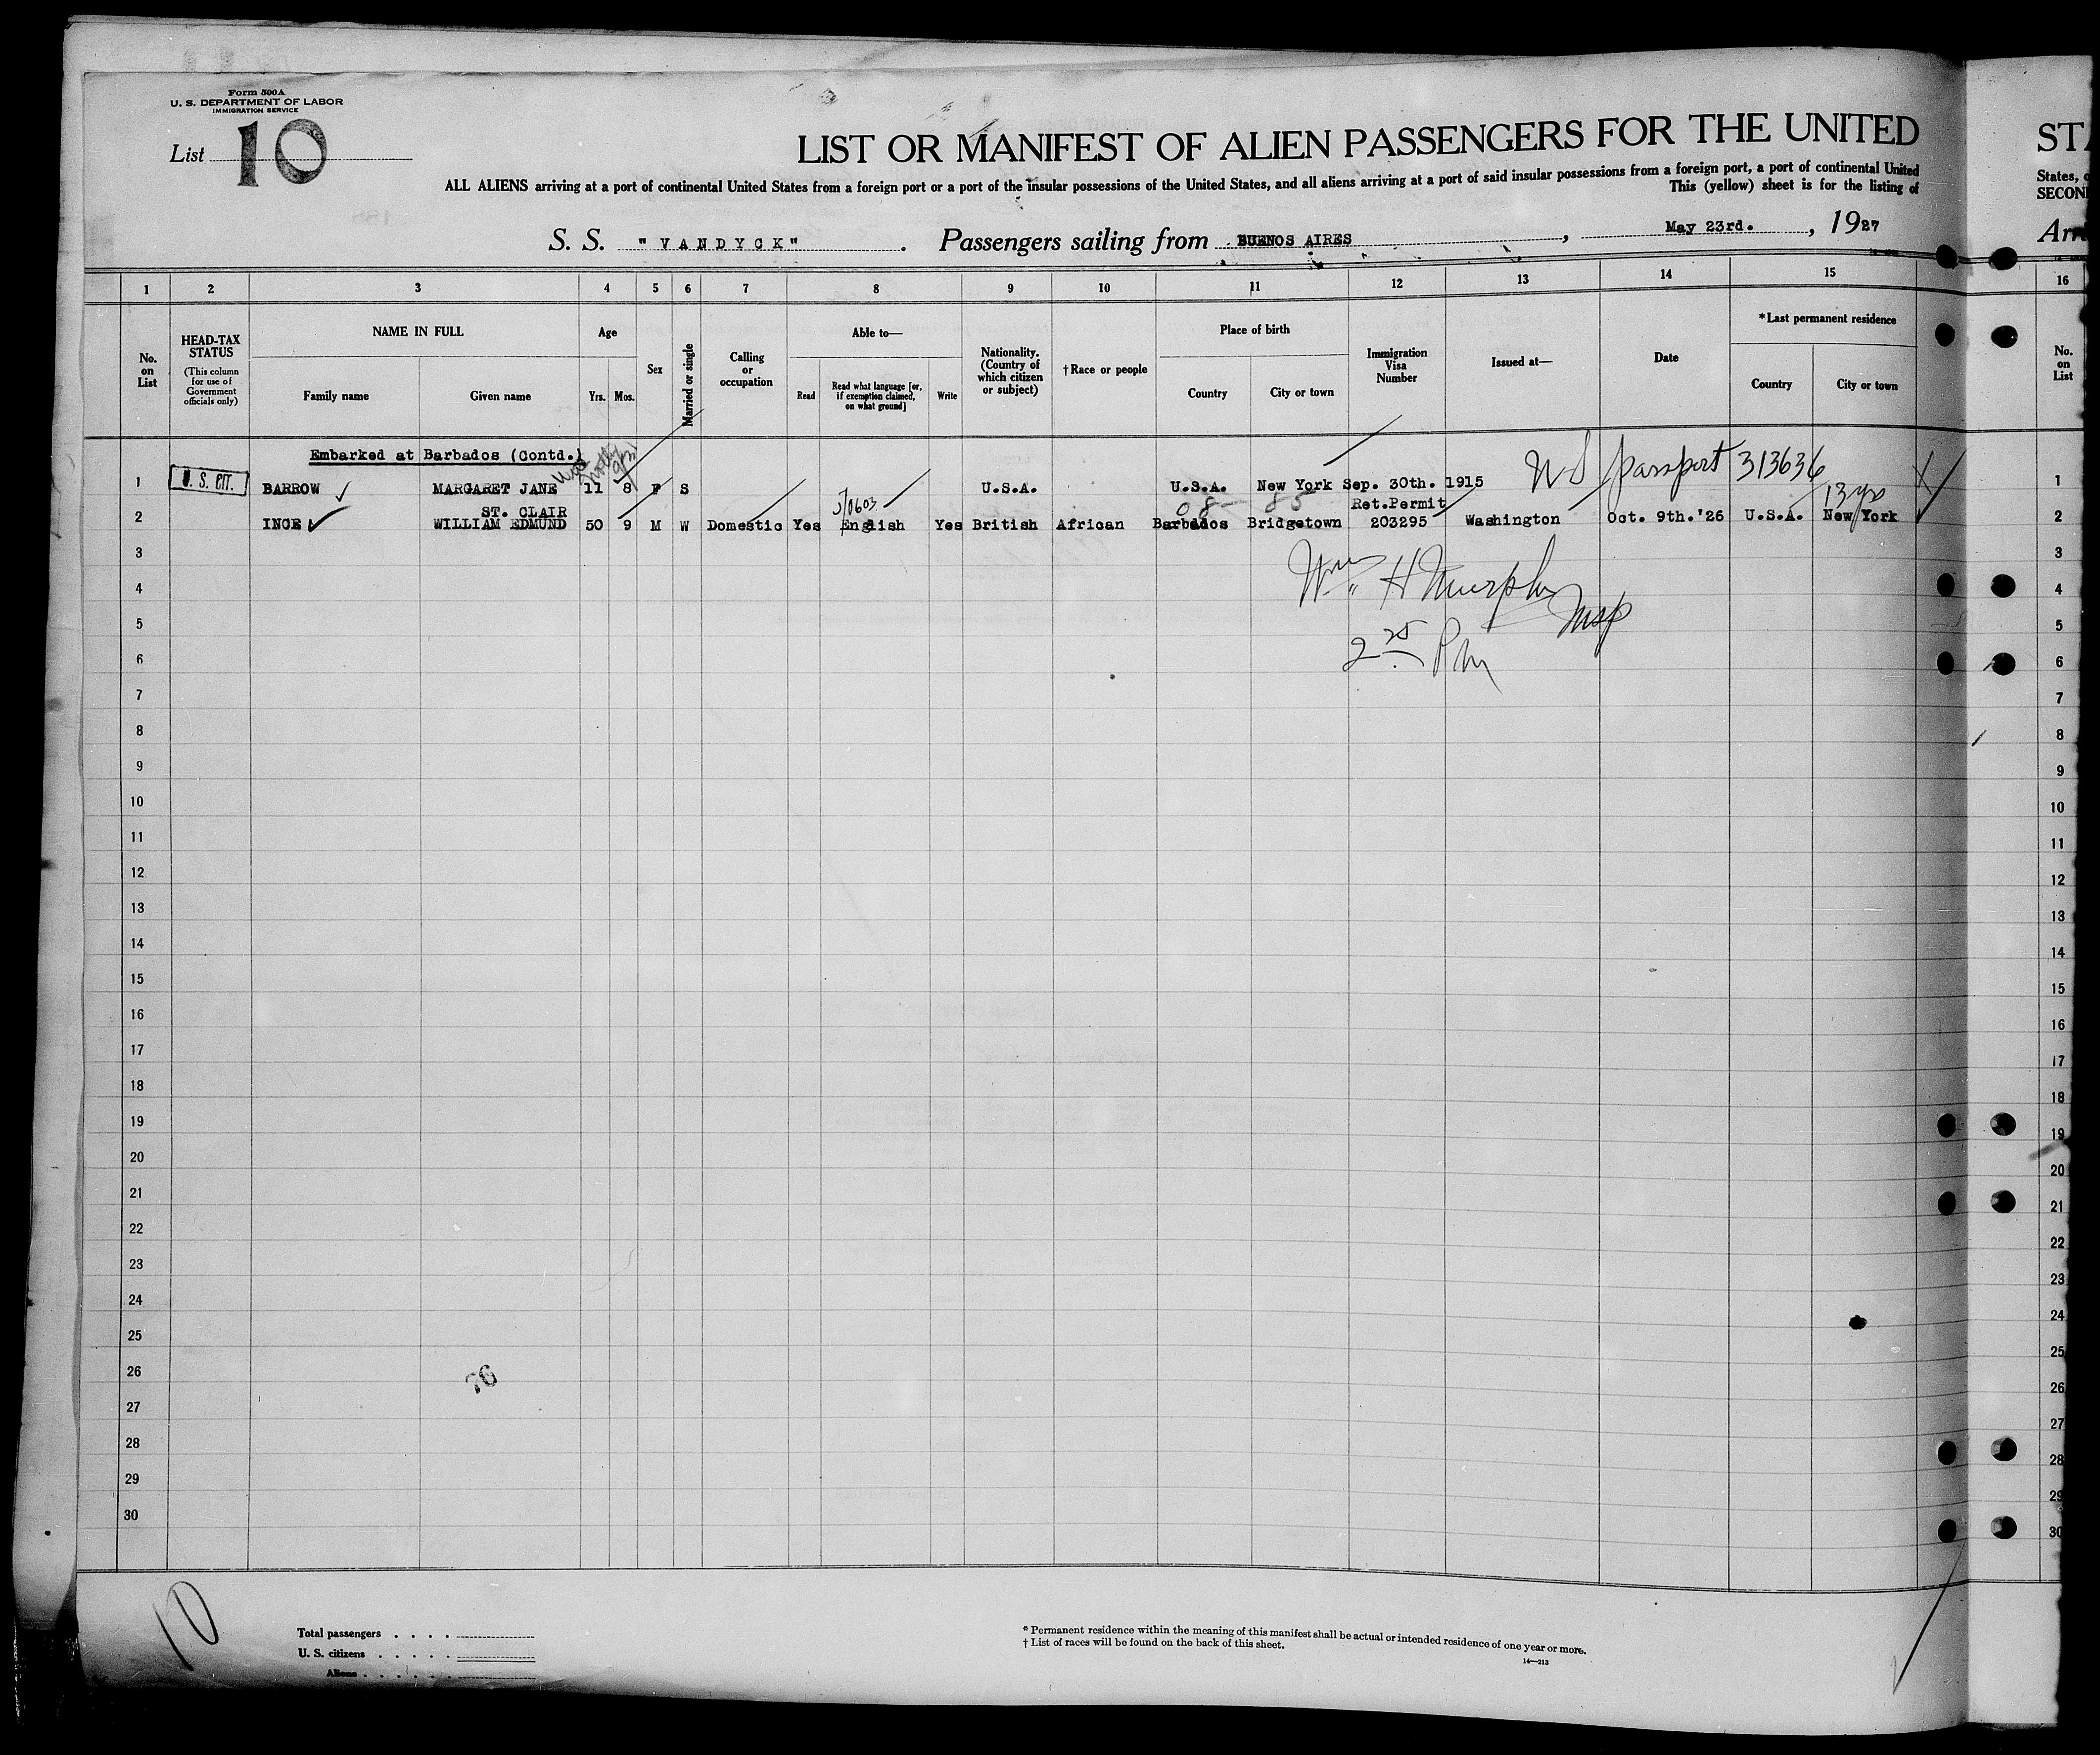 Form 500A
U. S. DEPARTMENT OF LABOR
IMMIGRATION SERVICE
List 10
LIST OR MANIFEST OF ALIEN PASSENGERS FOR THE UNITED
ALL ALIENS arriving at a port of continental United States from a foreign port or a port of the insular possessions of the United States, and all aliens arriving at a port of said insular possessions from a foreign port, a port of continental United
This (yellow) sheet is for the listing of
S. S. "VANDYCK" . Passengers sailing from BUENOS AIRES , May 23rd. , 1927
STA
States, o
SECON
Arr
1 2 3 4 5 6 7 8 9 10 11 12 13 14 15 16
No. on List
HEAD-TAX STATUS
(This column for use of Government officials only)
NAME IN FULL
Family name Given name
Age
Yrs. Mos.
Sex
Married or single
Calling or occupation
Able to—
Read
Read what language [or, if exemption claimed, on what ground]
Write
Nationality. (Country of which citizen or subject)
†Race or people
Place of birth
Country City or town
Immigration Visa Number
Issued at—
Date
*Last permanent residence
Country City or town
No. on List
Embarked at Barbados (Contd.)
1 U. S. CIT. BARROW MARGARET JANE 11 8 F S U.S.A. U.S.A. New York Sep. 30th. 1915 US passport 313636 1
08 - 85 Ret.Permit 13 yrs
ST. CLAIR
2 INCE WILLIAM EDMUND 50 9 M W Domestic Yes English Yes British African Barbados Bridgetown 203295 Washington Oct. 9th.'26 U.S.A. New York 2
3 3
Wm H Murphy
4 4
Insp
5 5
2 25 Pm
6 6
7 7
8 8
9 9
10 10
11 11
12 12
13 13
14 14
15 15
16 16
17 17
18 18
19 19
20 20
21 21
22 22
23 23
24 24
25 25
26 76 26
27 27
28 28
29 29
30 30
10
Total passengers . . . .
U. S. citizens . . . . .
Aliens . . . . . .
* Permanent residence within the meaning of this manifest shall be actual or intended residence of one year or more.
† List of races will be found on the back of this sheet.
14—213